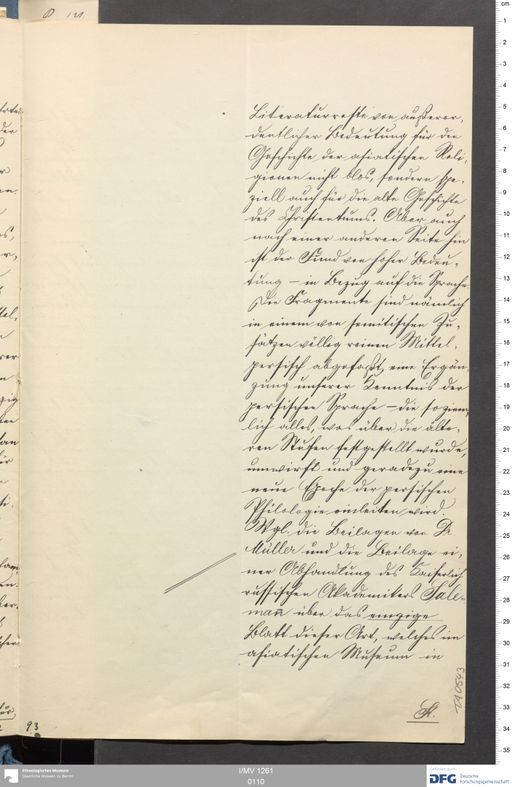 Literaturreste von außeror-
dentlicher Bedeutung für die
Geschichte der asiatischen Reli-
gionen nicht blos, sondern spe-
ziell auch für die alte Geschichte
des Christentums. Aber auch
nach einer anderen Seite hin
ist der Fund von hoher Bedeu-
tung – in Bezug auf die Sprache.
Die Fragmente sind nämlich
in einem von semitischen Zu-
sätzen völlig reinen Mittel-
persisch abgefaßt, eine Ergän-
zung unserer Kenntnis der
persischen Sprache – die so ziem-
lich alles, was über die älte-
ren Stufen festgestellt wurde,
umwirft und geradezu eine
neue Epoche der persischen
Philologie einleiten wird.
Vgl. die Beilagen von Dr
Müller und die Beilage ei-
ner Abhandlung des Kaiserlich
russischen Akademikers Sale-
man über das einzige
Blatt dieser Art, welches im
asiatischen Museum in
St.
93
Ethnologisches Museum
Staatliche Museen zu Berlin
I/MV 1261
0110
Gefördert durch
DFG
Deutsche
Forschungsgemeinschaft
cm
1
2
3
4
5
6
7
8
9
10
11
12
13
14
15
16
17
18
19
20
21
22
23
24
25
26
27
28
29
30
31
32
33
34
35